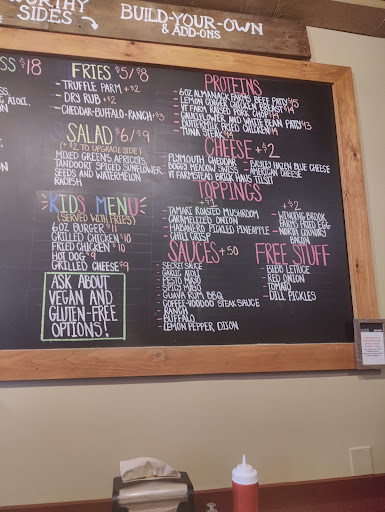 WORTHY
SIDES
BUILD-YOUR-OWN
& ADD-ONS
$18
FRIES $5/$8
- TRUFFLE PARM +$2
- DRY RUB +$2
- CHEDDAR-BUFFALO-RANCH +$3
SALAD $6/$9
(+ $2 TO UPGRADE SIDE)
MIXED GREENS APRICOTS,
TANDOORI SPICED SUNFLOWER
SEEDS AND WATERMELON
RADISH
KIDS MENU
(SERVED WITH FRIES)
6OZ BURGER $11
GRILLED CHICKEN $10
FRIED CHICKEN $10
HOT DOG $9
GRILLED CHEESE $9
ASK ABOUT
VEGAN AND
GLUTEN-FREE
OPTIONS!
PROTEINS
- 6OZ ALMANACK FARMS BEEF PATTY $15
- LEMON GINGER CHICKEN BREAST $14
- VT FARM RAISED PORK CHOP
- CAULIFLOWER AND WHITE BEAN PATTY $13
- BUTTERMILK FRIED CHICKEN $14
- TUNA STEAK
CHEESE +$2
- PLYMOUTH CHEDDAR
- BOGGY MEADOW SWISS
- VT FARMSTEAD PATTY HANS TILSIT
- BAYLEY HAZEN BLUE CHEESE
- AMERICAN CHEESE
TOPPINGS
+$1
- TAMARI ROASTED MUSHROOM
- CARAMELIZED ONION
- HABANERO PICKLED PINEAPPLE
- CHILI CRISP
+$2
- WINDING BROOK
FARMS FRIED EGG
- NORTH COUNTRY
BACON
SAUCES +.50
- SECRET SAUCE
- GARLIC AIOLI
- PESTO MAYO
- SPICY MAYO
- GUAVA RUM BBQ
- COFFEE-VOODOO STEAK SAUCE
- RANCH
- BUFFALO
- LEMON PEPPER DIJON
FREE STUFF
- BIBB LETTUCE
- RED ONION
- TOMATO
- DILL PICKLES